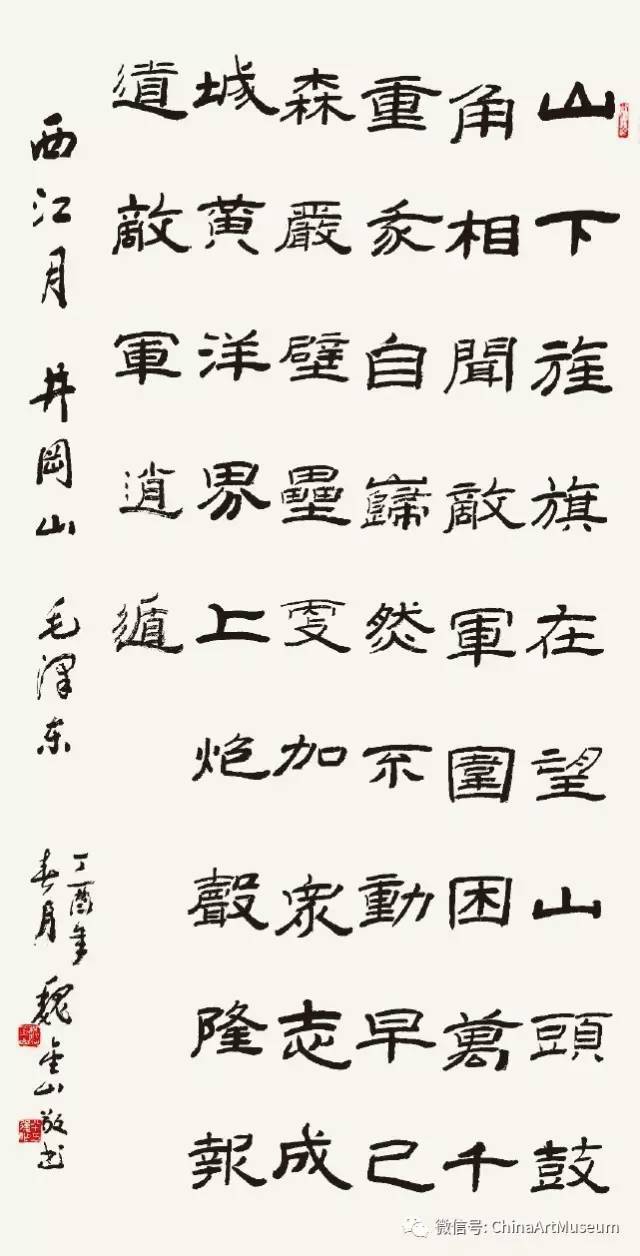 山下旌旗在望山頭鼓
角相聞敵軍圍困萬千
重我自巋然不動早已
森嚴壁壘更加衆志成
城黄洋界上炮聲隆報
道敵軍逍遁
西江月 井岡山 毛澤东
丁酉年
春月 魏金山敬书
微信号: ChinaArtMuseum